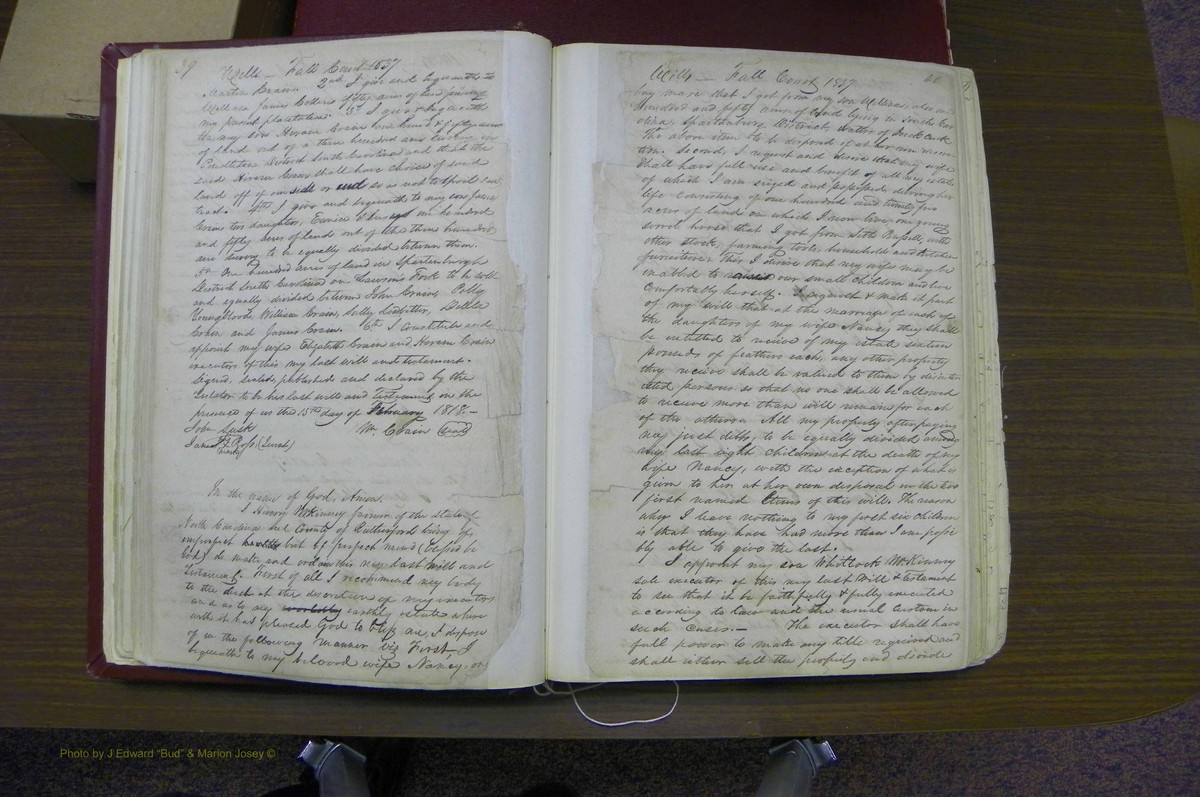 39
Wills — Fall Court 1837
Martin Crain 2nd I give and bequeath to
William James Collins fifty acres of land joining
my parent plantation. 3rd I give & bequeath
to my son Hiram Crain one hund & fifty acres
of land out of a three hundred and
Pendleton District South Carolina and that the
said Hiram Crain shall have choice of said
land off of one side or end so as not to spoil
tract. 4th I give and bequeath to my son James
Crains two daughters, Eunice & one hundred
and fifty acres of land out of the three hundred
and to be equally divided between them.
5th One hundred acres of land in Spartenburgh
District South Carolina on Lawsons Fork to be sold
and equally divided between John Crain, Polly
Youngblood, William Crain, Sally
and James Crain. 6th I Constitute and
appoint my wife Elizabeth Crain and Hiram Crain
executors of this my last will and testament.
Signed, sealed, published and declared by the
Testator to be his last will and testament on the
presence of us the 15th day of February 1818.—
John Lusk Wm Crain (seal)
James Ross (Jurat)
mark
In the name of God, Amen.
I Henry McKinney farmer of the state of
North Carolina and County of Rutherford being of
imperfect health but of perfect mind (blessed be
God) do make and ordain this my last will and
Testament. First of all I recommend my body
to the dust at the discretion of my executors
and as to my worldly earthly estate where
with it has pleased God to bless me, I dispose
of in the following manner viz First I
bequeath to my beloved wife Nancy, one
40
Wills — Fall Court 1837
bay mare that I got from my son William, also one
Hundred and fifty acres of land lying in South Car
olina Spartenburg District, waters of Buck Creek
the above item to be disposed of at her own discre
tion. Second, I request and desire that my wife
shall have full use and benefit of all my estate
of which I am seized and possessed, during her
life consisting of one hundred and twenty five
acres of land on which I now live, one young
sorrel horse that I got from Seth Bussell, with
other stock, farming tools, household and kitchen
furniture; this I desire that my wife may be
enabled to raise our small children and live
comfortably herself. I request & make it part
of my will that at the marriage of each of
the daughters of my wife Nancy they shall
be entitled to receive of my estate sixteen
pounds of feathers each, any other property
they receive shall be valued to them by disinter
ested persons so that no one shall be allowed
to receive more than will remain for each
of the others. All my property after paying
my just debts, to be equally divided among
my last eight children at the death of my
wife Nancy, with the exception of what is
given to her at her own disposal in the two
first named Items of this will. The reason
why I leave nothing to my first six children
is that they have had more than I am possi
bly able to give the last.
I appoint my son Whitlock McKinney
sole executor of this my last Will & testament
to see that it be faithfully & fully executed
according to law and the usual custom in
such cases.— The executor shall have
full power to make any title required and
shall either sell the property and divide
Photo by J Edward "Bud" & Marion Josey ©